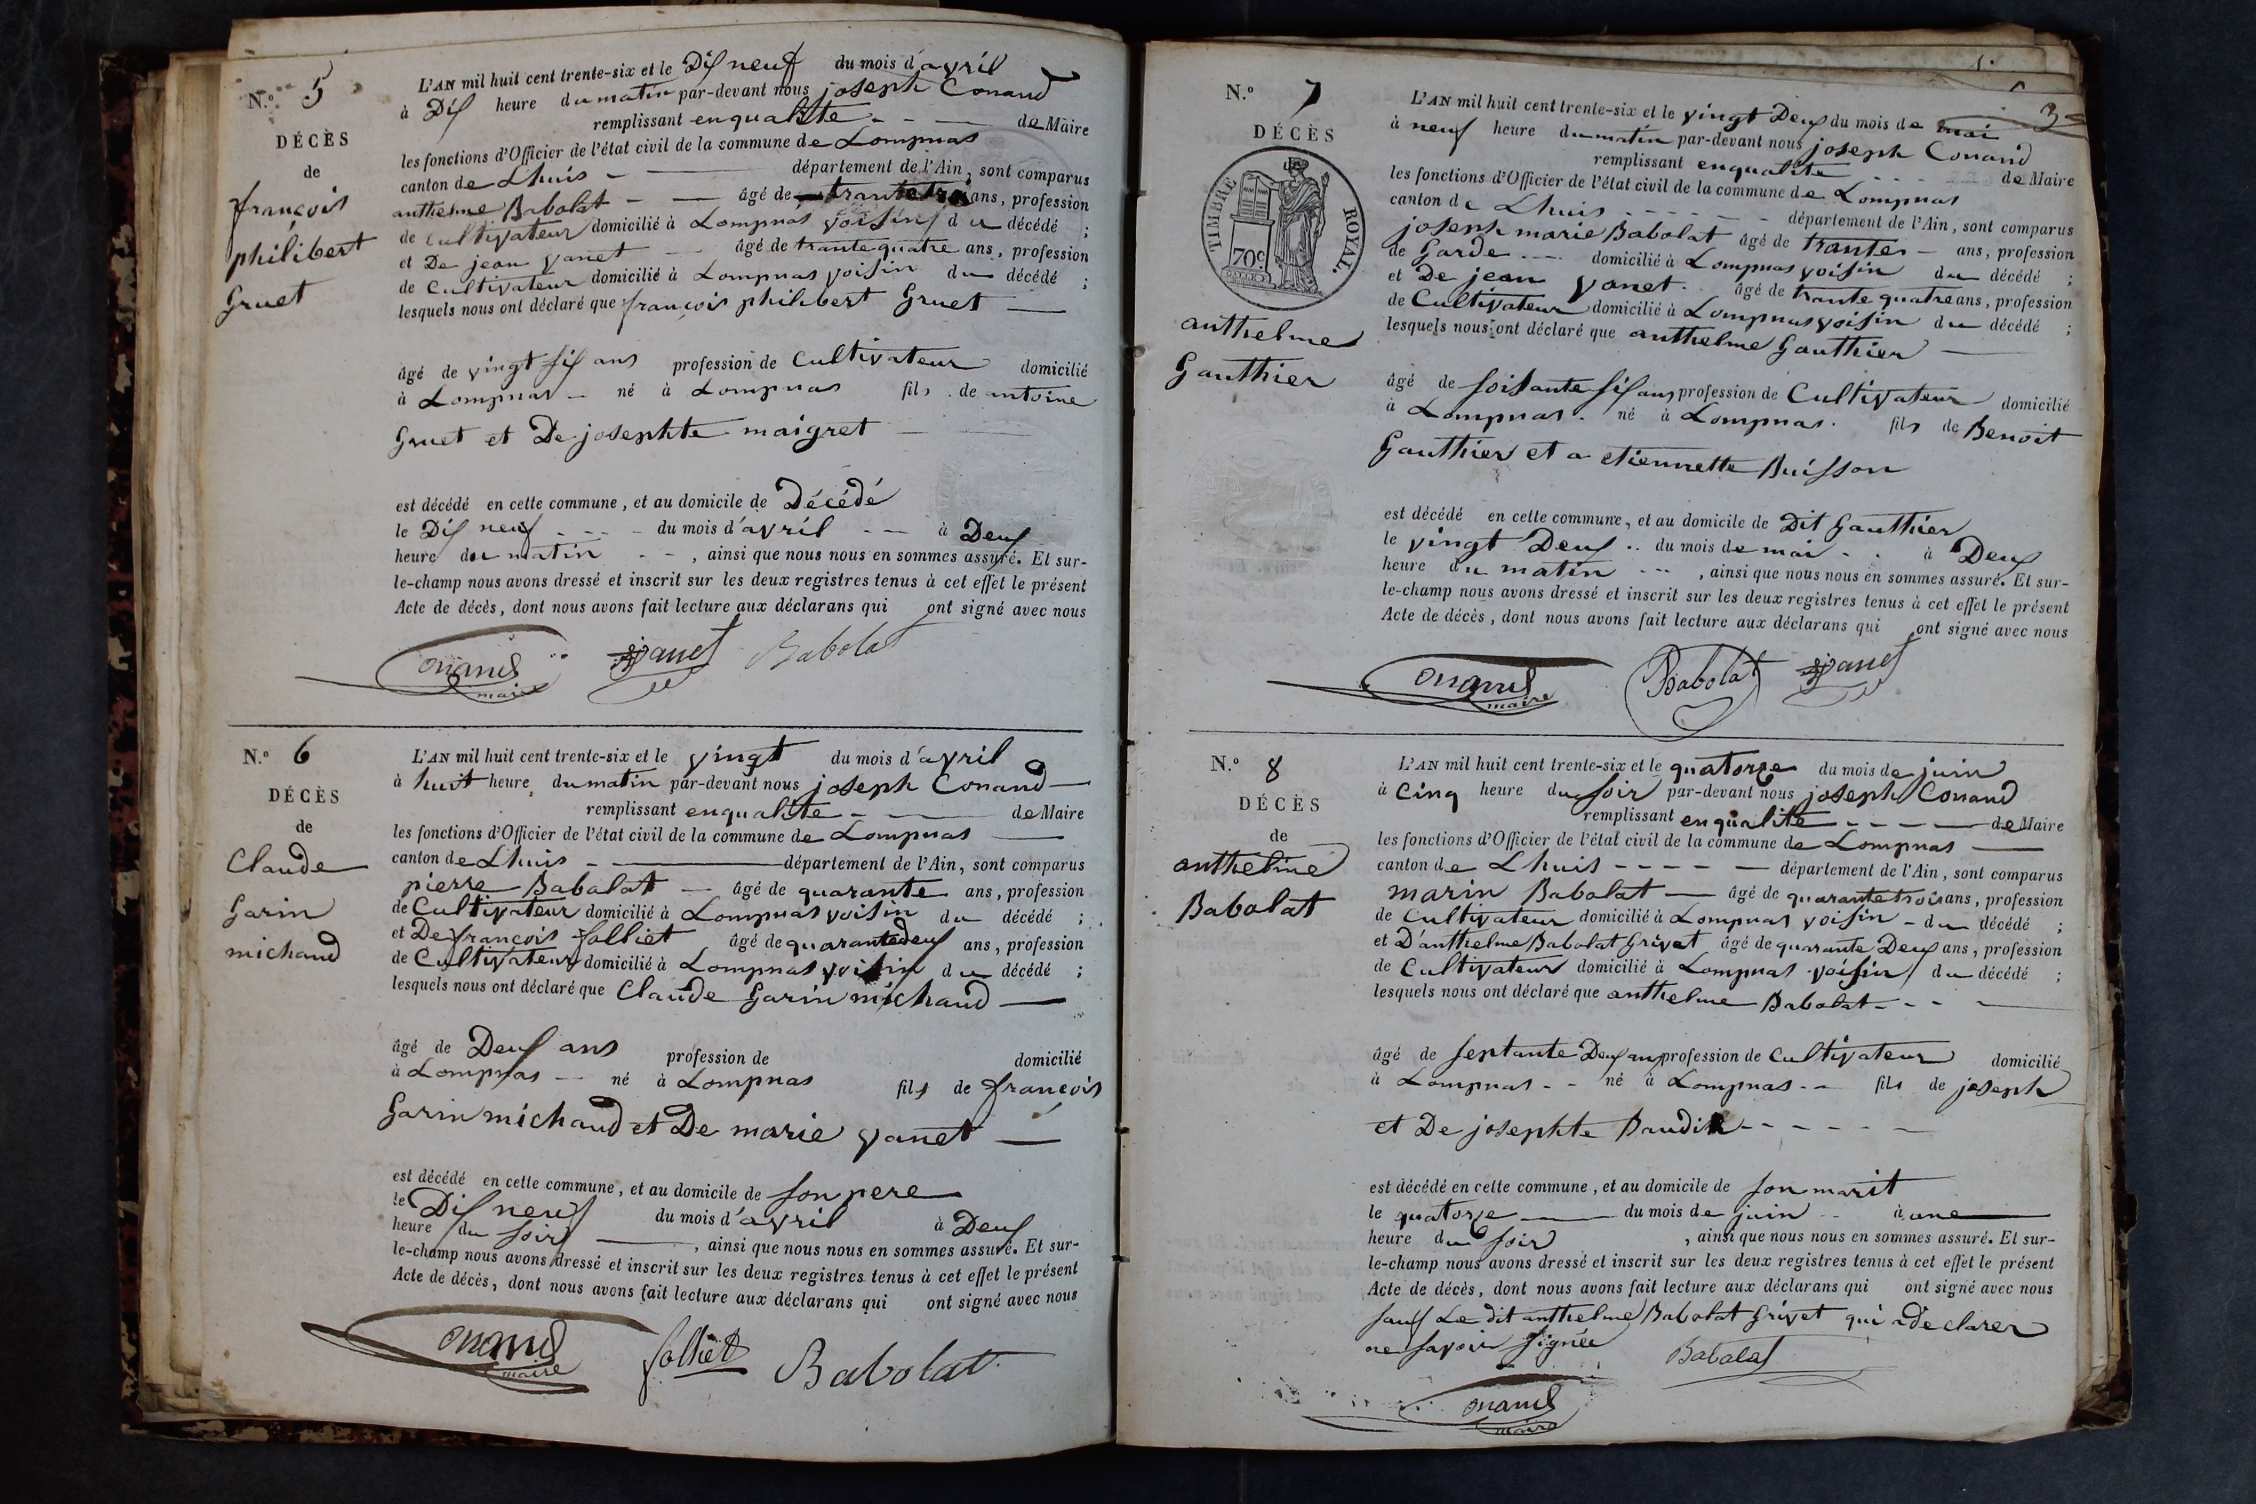 N.º 5
DÉCÈS
de
françois
philibert
Gruet
L'AN mil huit cent trente-six et le Dix neuf du mois d'avril
à Dix heure du matin par-devant nous joseph Conand
remplissant en qualité de Maire
les fonctions d'Officier de l'état civil de la commune de Lompnas
canton de Lhuis département de l'Ain, sont comparus
anthelme Babolat âgé de ans, profession
de cultivateur domicilié à Lompnas voisin du décédé ;
et De jean yanet âgé de trante quatre ans, profession
de Cultivateur domicilié à Lompnas voisin du décédé ;
lesquels nous ont déclaré que françois philibert Gruet
âgé de vingt six ans profession de Cultivateur domicilié
à Lompnas né à Lompnas fils de antoine
Gruet et De josephte maigret
est décédé en cette commune, et au domicile de Décédé
le Dix neuf du mois d'avril à Deux
heure du matin, ainsi que nous nous en sommes assuré. Et sur-
le-champ nous avons dressé et inscrit sur les deux registres tenus à cet effet le présent
Acte de décès, dont nous avons fait lecture aux déclarans qui ont signé avec nous
Conand maire yanet Babolat
N.º 6
DÉCÈS
de
Claude
Garin
michaud
L'AN mil huit cent trente-six et le vingt du mois d'avril
à huit heure du matin par-devant nous joseph Conand
remplissant en qualité de Maire
les fonctions d'Officier de l'état civil de la commune de Lompnas
canton de Lhuis département de l'Ain, sont comparus
pierre Babolat âgé de quarante ans, profession
de Cultivateur domicilié à Lompnas voisin du décédé ;
et De françois folliet âgé de quarante deux ans, profession
de Cultivateur domicilié à Lompnas voisin du décédé ;
lesquels nous ont déclaré que Claude Garin michaud
âgé de Deux ans profession de domicilié
à Lompnas né à Lompnas fils de françois
Garin michaud et De marie yanet
est décédé en cette commune, et au domicile de son pere
le Dix neuf du mois d'avril à Deux
heure du soir, ainsi que nous nous en sommes assuré. Et sur-
le-champ nous avons dressé et inscrit sur les deux registres tenus à cet effet le présent
Acte de décès, dont nous avons fait lecture aux déclarans qui ont signé avec nous
Conand maire folliet Babolat
N.º 7
DÉCÈS
TIMBRE ROYAL.
70c
anthelme
Gauthier
L'AN mil huit cent trente-six et le vingt Deux du mois de mai
à neuf heure du matin par-devant nous joseph Conand
remplissant en qualité de Maire
les fonctions d'Officier de l'état civil de la commune de Lompnas
canton de Lhuis département de l'Ain, sont comparus
joseph marie Babolat âgé de trante ans, profession
de Garde domicilié à Lompnas voisin du décédé ;
et De jean yanet âgé de trante quatre ans, profession
de Cultivateur domicilié à Lompnas voisin du décédé ;
lesquels nous ont déclaré que anthelme Gauthier
âgé de soisante six ans profession de Cultivateur domicilié
à Lompnas né à Lompnas fils de Benoit
Gauthier et a etiennette Buisson
est décédé en cette commune, et au domicile de Dit Gauthier
le vingt Deux du mois de mai à Deux
heure du matin, ainsi que nous nous en sommes assuré. Et sur-
le-champ nous avons dressé et inscrit sur les deux registres tenus à cet effet le présent
Acte de décès, dont nous avons fait lecture aux déclarans qui ont signé avec nous
Conand maire Babolat yanet
N.º 8
DÉCÈS
de
anthelme
Babolat
L'AN mil huit cent trente-six et le quatorze du mois de juin
à Cinq heure du soir par-devant nous joseph Conand
remplissant en qualité de Maire
les fonctions d'Officier de l'état civil de la commune de Lompnas
canton de Lhuis département de l'Ain, sont comparus
marin Babolat âgé de quarante trois ans, profession
de Cultivateur domicilié à Lompnas voisin du décédé ;
et D'anthelme Babolat Grivet âgé de quarante Deux ans, profession
de Cultivateur domicilié à Lompnas voisin du décédé ;
lesquels nous ont déclaré que anthelme Babolat
âgé de septante Deux ans profession de Cultivateur domicilié
à Lompnas né à Lompnas fils de joseph
et De josephte Baudin
est décédé en cette commune, et au domicile de son marit
le quatorze du mois de juin à une
heure du soir, ainsi que nous nous en sommes assuré. Et sur-
le-champ nous avons dressé et inscrit sur les deux registres tenus à cet effet le présent
Acte de décès, dont nous avons fait lecture aux déclarans qui ont signé avec nous
sauf Le dit anthelme Babolat Grivet qui a declarer
ne savoir signée Babolat
Conand maire